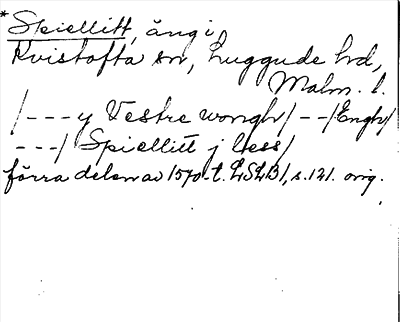 * Spiellitt, äng i
Kvistofta sn, Luggude hd,
Malm. l.
/--- y Vestre wongh/ --/Engh/
---/ Spiellitt j less/
förra delen av 1570-t. LSLB1, s. 121. orig.